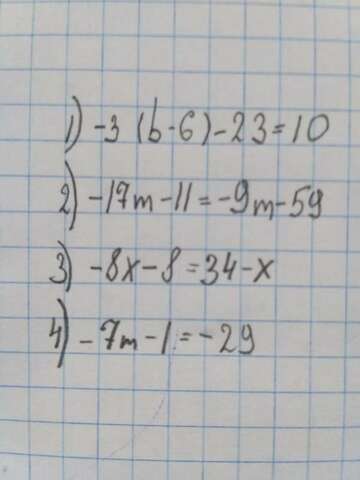 1) -3 (b-6)-23=10
2) -17m-11=-9m-59
3) -8x-8=34-x
4) -7m-1=-29